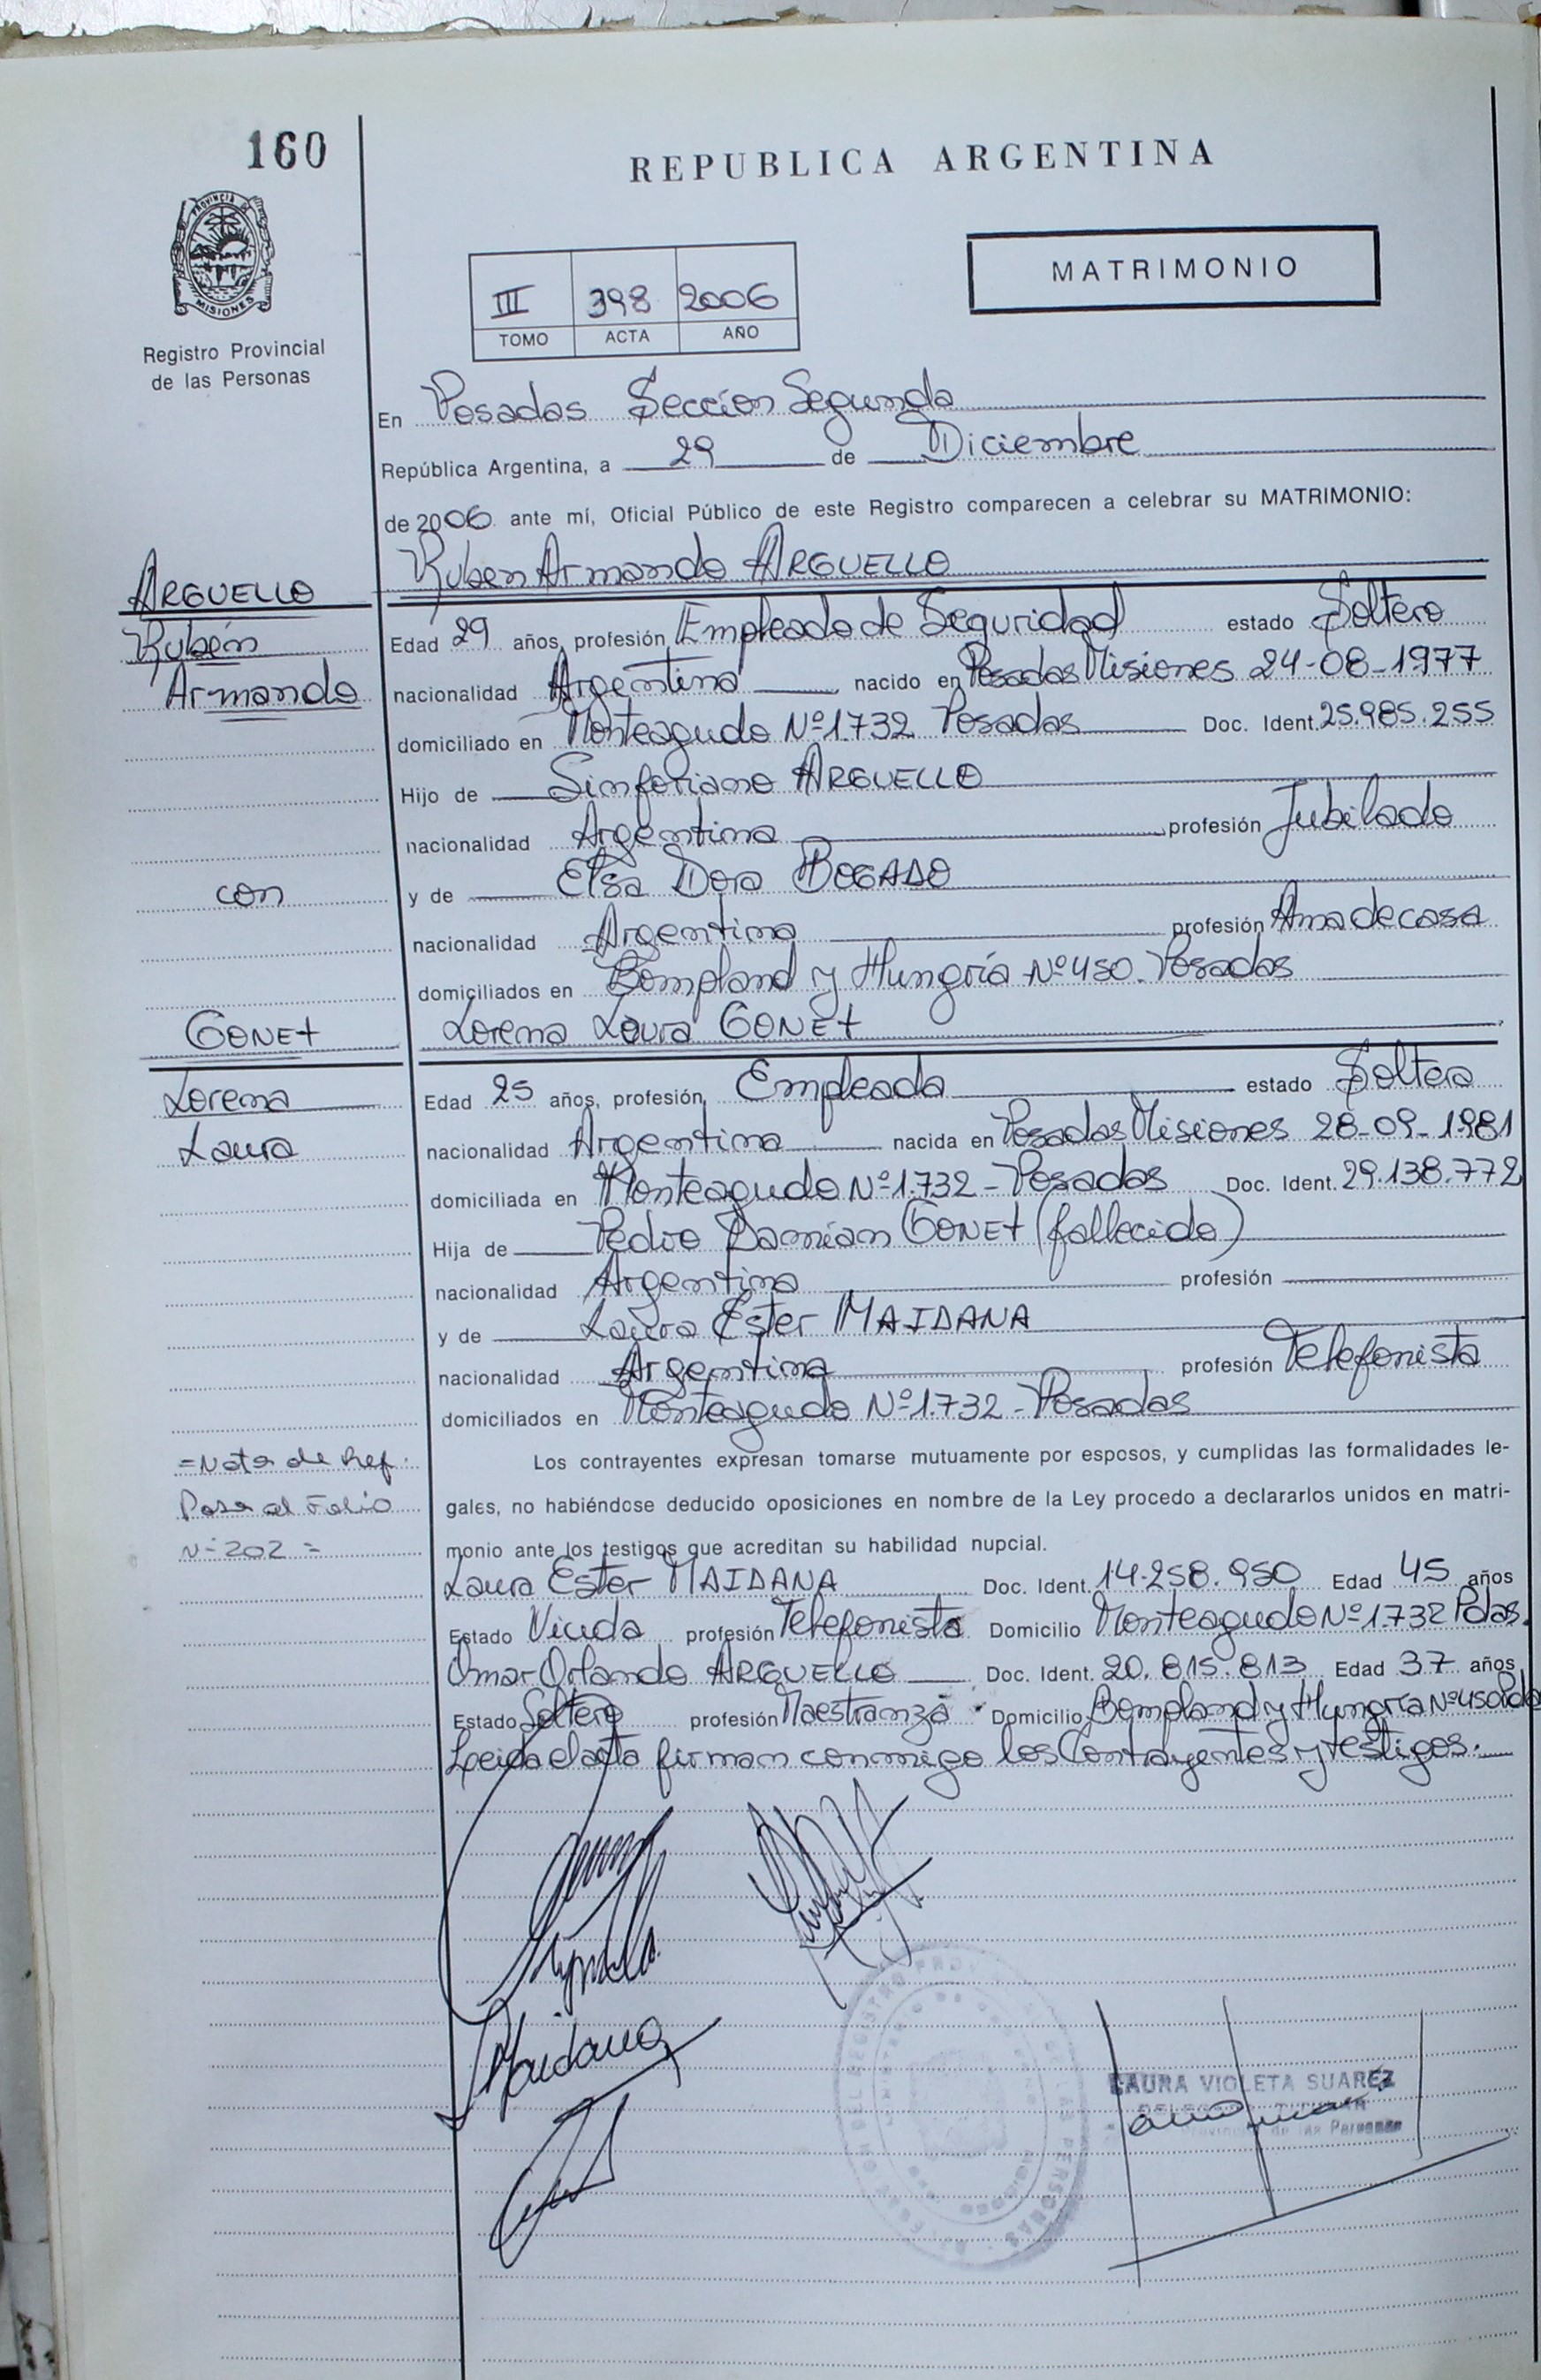 160
REPUBLICA ARGENTINA
PROVINCIA DE
MISIONES
MATRIMONIO
III 398 2006
TOMO ACTA AÑO
Registro Provincial
de las Personas
En Posadas Sección Segunda
República Argentina, a 29 de Diciembre
de 2006 ante mí, Oficial Público de este Registro comparecen a celebrar su MATRIMONIO:
ARGUELLO Ruben Armando ARGUELLO
Rubén Edad 29 años, profesión Empleado de Seguridad estado Soltero
Armando nacionalidad Argentina nacido en Posadas Misiones 24-08-1977
domiciliado en Monteagudo Nº 1.732 Posadas Doc. Ident. 25.985.255
Hijo de Sinforiano ARGUELLO
nacionalidad Argentina profesión Jubilado
con y de Elsa Dora BOGADO
nacionalidad Argentina profesión Ama de casa
domiciliados en Bompland y Hungría Nº 450. Posadas
GONET Lorena Laura GONET
Lorena Edad 25 años, profesión, Empleada estado Soltera
Laura nacionalidad Argentina nacida en Posadas Misiones 28-09-1981
domiciliada en Monteagudo Nº 1.732 - Posadas Doc. Ident. 29.138.772
Hija de Pedro Damián GONET (fallecido)
nacionalidad Argentina profesión
y de Laura Ester MAIDANA
nacionalidad Argentina profesión Telefonista
domiciliados en Monteagudo Nº 1.732 - Posadas
= Nota de Ref. Los contrayentes expresan tomarse mutuamente por esposos, y cumplidas las formalidades le-
Pasa al Folio gales, no habiéndose deducido oposiciones en nombre de la Ley procedo a declararlos unidos en matri-
Nº 202 = monio ante los testigos que acreditan su habilidad nupcial.
Laura Ester MAIDANA Doc. Ident. 14.258.950 Edad 45 años
Estado Viuda profesión Telefonista Domicilio Monteagudo Nº 1.732 Pdas.
Omar Orlando ARGUELLO Doc. Ident. 20.815.813 Edad 37 años
Estado Soltero profesión Maestranza Domicilio Bompland y Hungría Nº 450 Pdas
Leida el acta firman conmigo los Contrayentes y testigos.
Maidana
LAURA VIOLETA SUAREZ
de las Personas